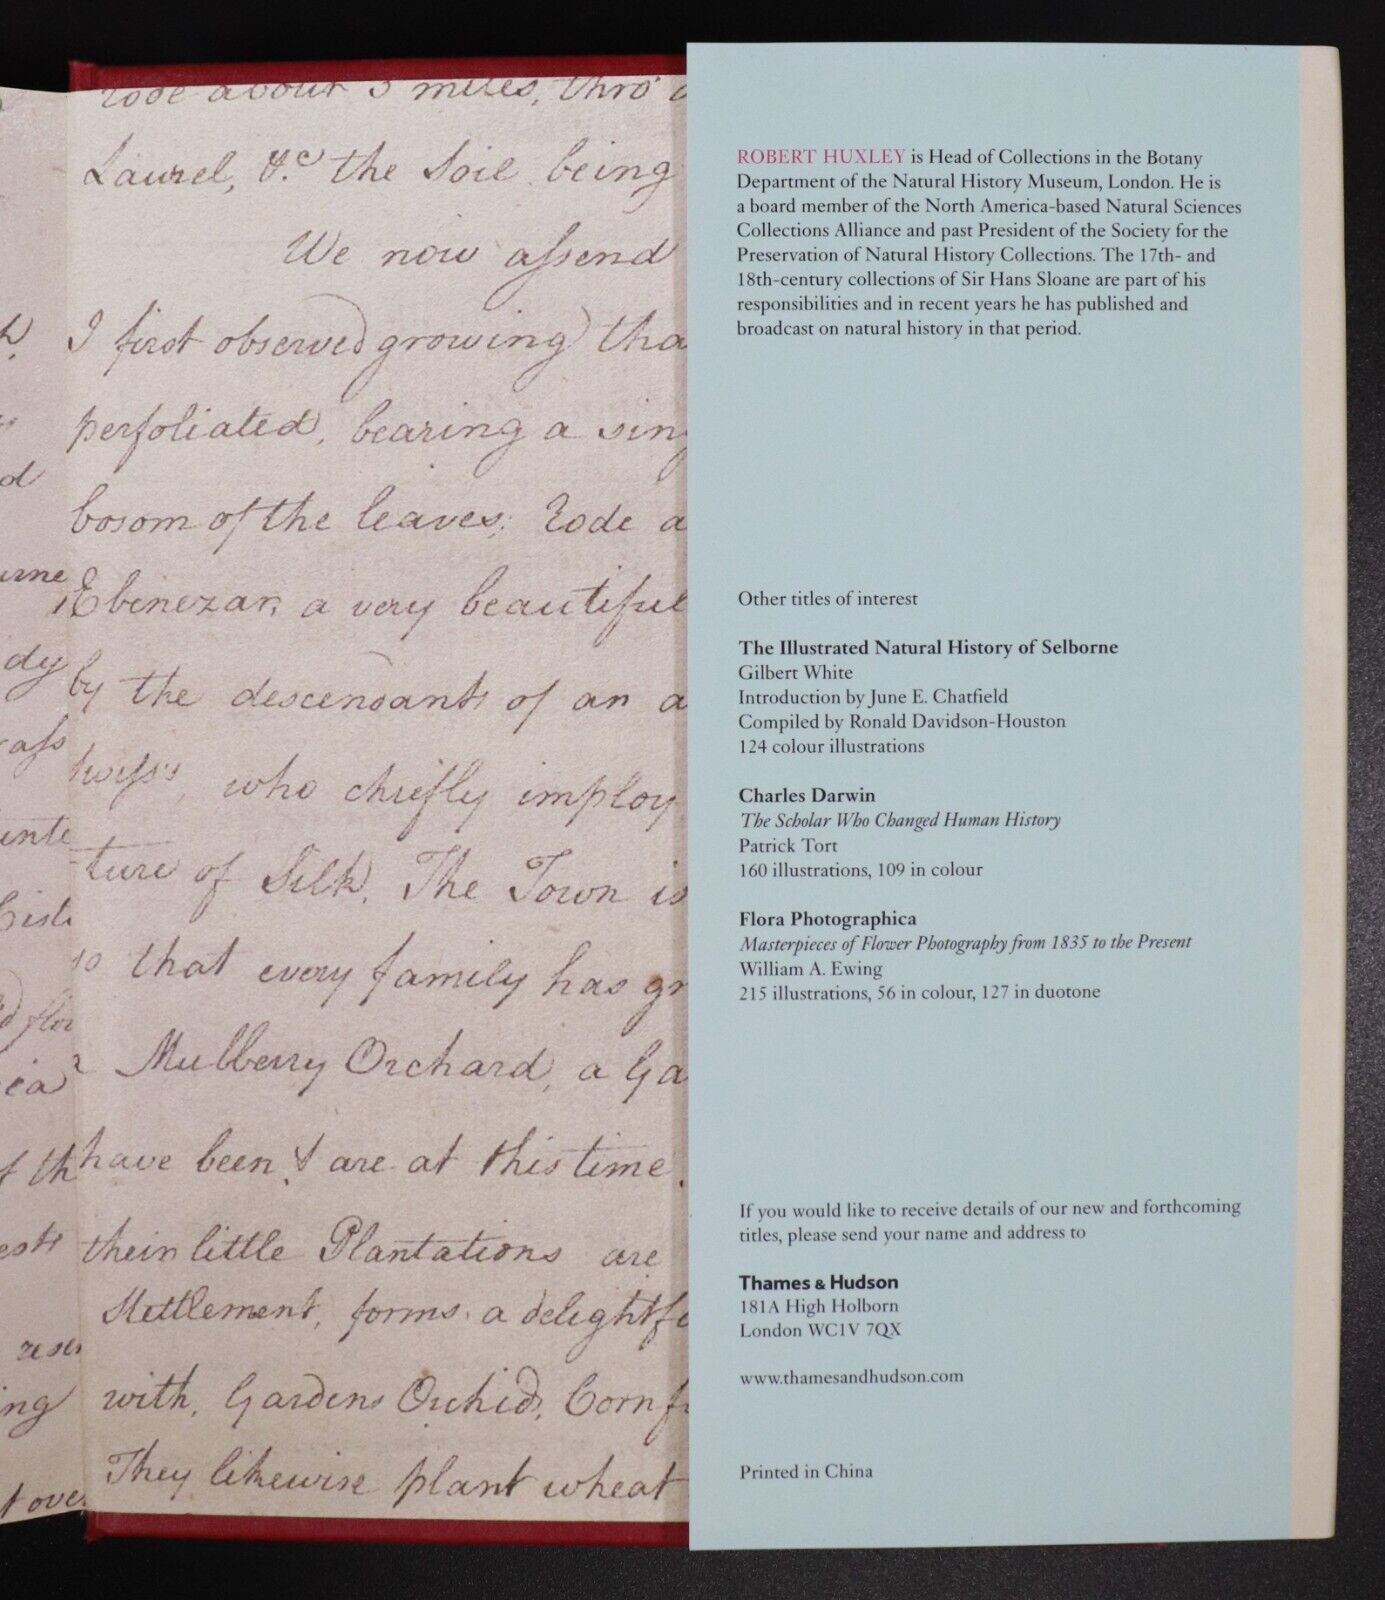 rode about 3 miles, thro'
Laurel, &c. the Soil being
We now assend
I first observed growing
perfoliated, bearing a
bosom of the leaves; rode a
Ebenezar, a very beautiful
by the descendants of an
who chiefly imploy
ture of Silk. The Town is
so that every family has
Mulberry Orchard, a
have been & are at this time
their little Plantations are
Settlement, forms a
with, Gardens Orchids, Corn
They likewise plant wheat
ROBERT HUXLEY is Head of Collections in the Botany
Department of the Natural History Museum, London. He is
a board member of the North America-based Natural Sciences
Collections Alliance and past President of the Society for the
Preservation of Natural History Collections. The 17th- and
18th-century collections of Sir Hans Sloane are part of his
responsibilities and in recent years he has published and
broadcast on natural history in that period.
Other titles of interest
The Illustrated Natural History of Selborne
Gilbert White
Introduction by June E. Chatfield
Compiled by Ronald Davidson-Houston
124 colour illustrations
Charles Darwin
The Scholar Who Changed Human History
Patrick Tort
160 illustrations, 109 in colour
Flora Photographica
Masterpieces of Flower Photography from 1835 to the Present
William A. Ewing
215 illustrations, 56 in colour, 127 in duotone
If you would like to receive details of our new and forthcoming
titles, please send your name and address to
Thames & Hudson
181A High Holborn
London WC1V 7QX
www.thamesandhudson.com
Printed in China